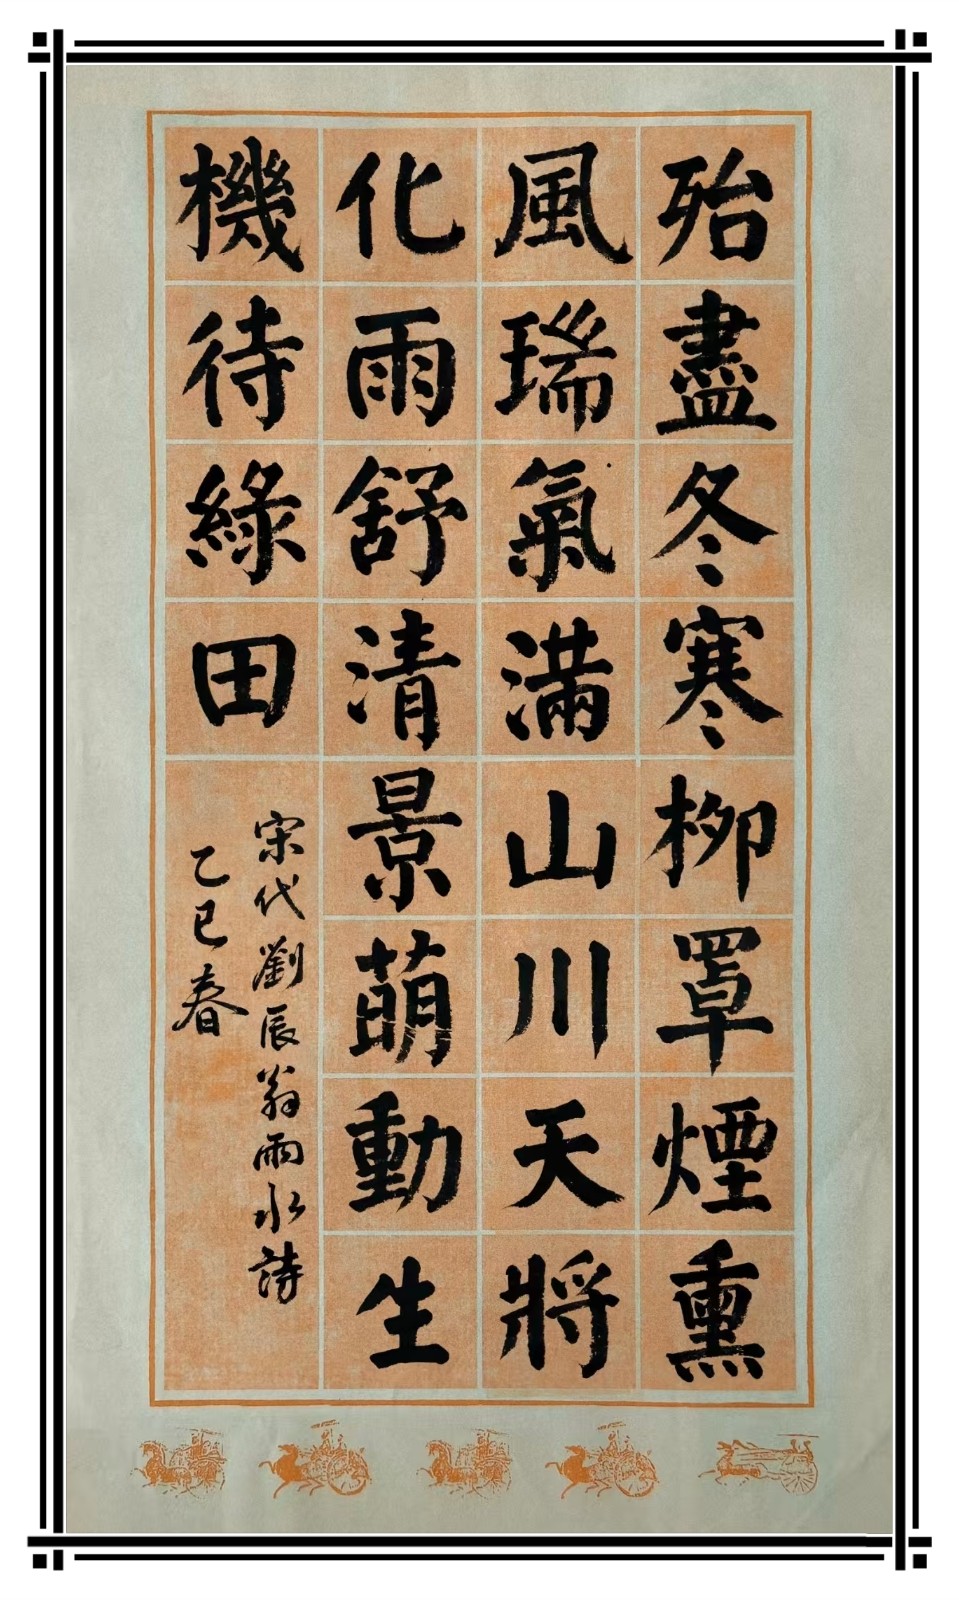 殆盡冬寒柳罩煙熏
風瑞氣滿山川天將
化雨舒清景萌動生
機待綠田
宋代劉辰翁雨水詩
乙巳春